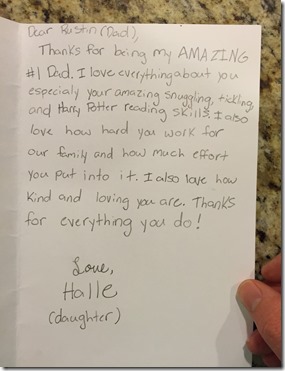 Dear Rustin (Dad),
Thanks for being my AMAZING
#1 Dad. I love everything about you
especialy your amazing snuggling, tickling,
and Harry Potter reading skills. I also
love how hard you work for
our family and how much effort
you put into it. I also love how
kind and loving you are. Thanks
for everything you do!
Love,
Halle
(daughter)